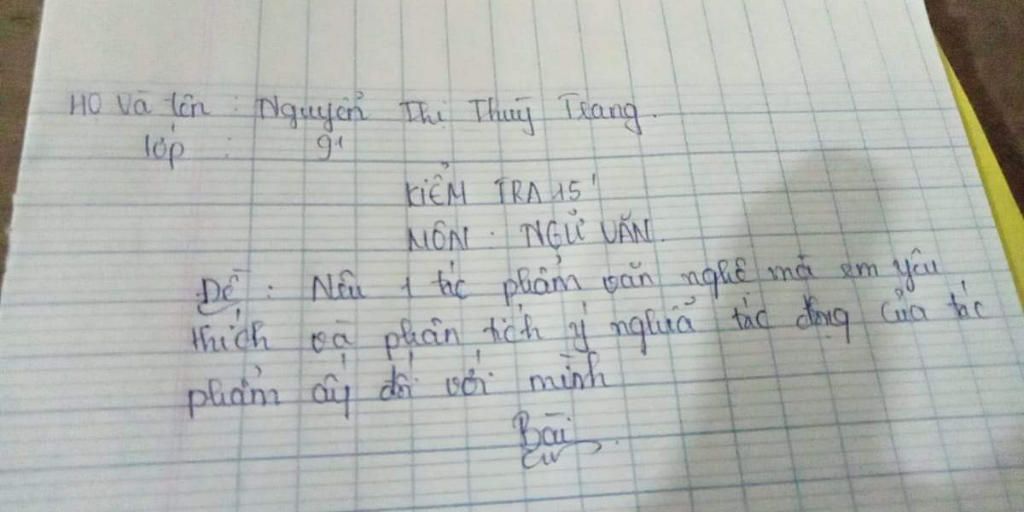 Họ và tên : Nguyễn Thị Thuỳ Trang.
lớp : 9¹
KIỂM TRA 15'
MÔN : NGỮ VĂN.
Đề : Nêu 1 tác phẩm văn nghệ mà em yêu
thích và phân tích ý nghĩa tác động của tác
phẩm ấy đối với mình
Bài